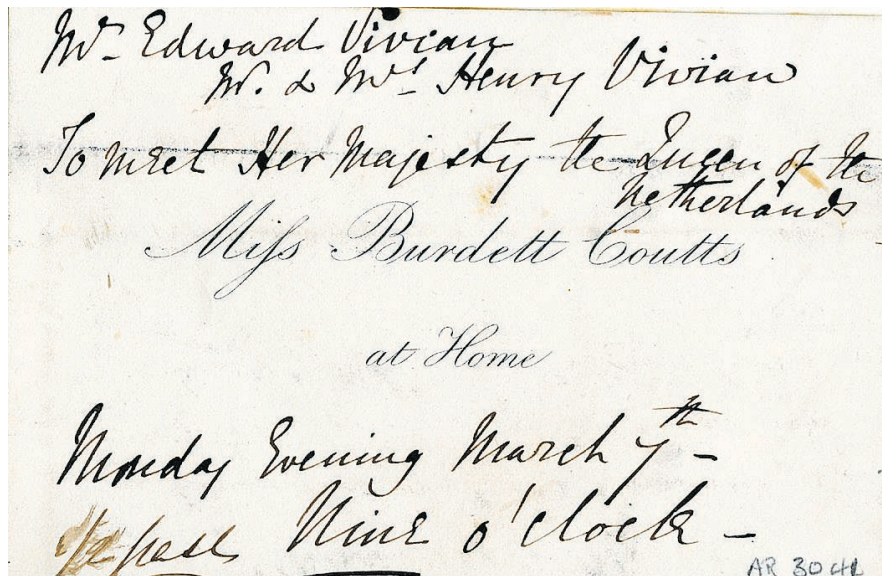 Mr. Edward Vivian
Mr. & Mrs. Henry Vivian
To meet Her Majesty the Queen of the
Netherlands
Miss Burdett Coutts
at Home
Monday Evening March 7th –
1/2 past Nine o'clock –